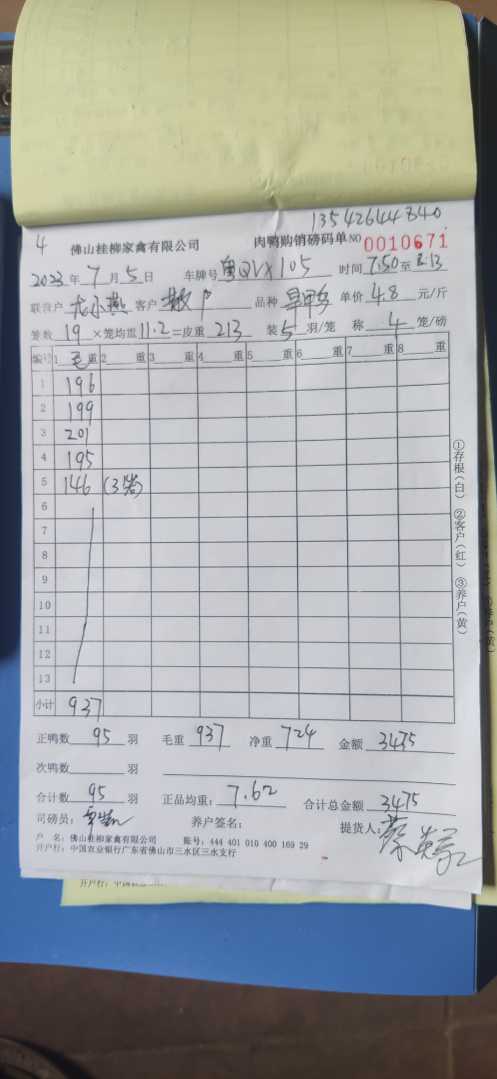 13542644840
4 佛山桂柳家禽有限公司 肉鸭购销磅码单 NO 0010671
2023年7月5日 车牌号 粤QVX105 时间 7:50至8:13
联营户 龙小燕 客户 散户 品种 旱甲乡 单价 4.8 元/斤
笼数 19 ×笼均重 11.2 =皮重 213 装 5 羽/笼 称 4 笼/磅
编号 1 毛重 2 重 3 重 4 重 5 重 6 重 7 重 8 重
1 196
2 199
3 201
4 195
5 146 (3笼)
6
7
8
9
10
11
12
13
小计 937
正鸭数 95 羽 毛重 937 净重 724 金额 3475
次鸭数 羽
合计数 95 羽 正品均重: 7.62 合计总金额 3475
司磅员: 养户签名: 提货人:
户 名: 佛山桂柳家禽有限公司 账号: 444 401 010 400 169 29
开户行: 中国农业银行广东省佛山市三水区三水支行
①存根(白) ②客户(红) ③养户(黄)